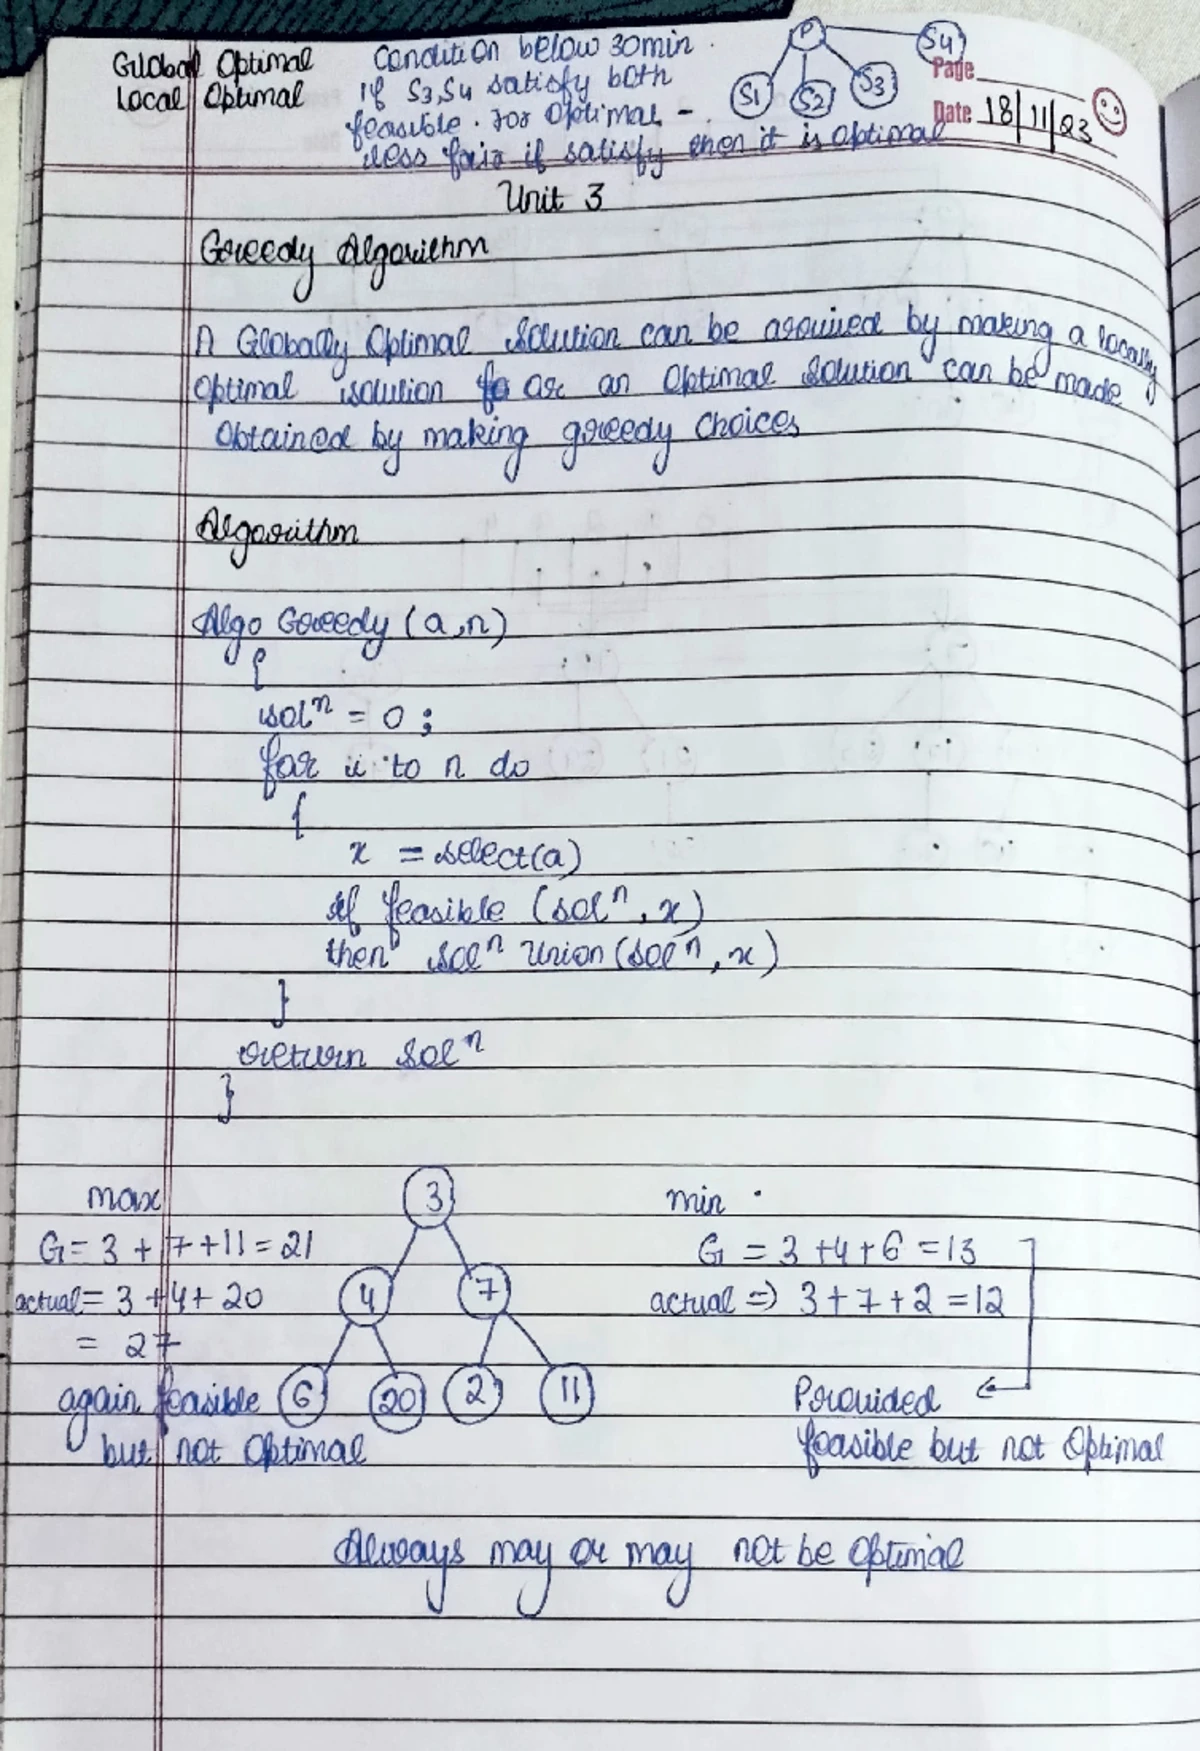 Global Optimal
Local Optimal
Condition below 30min.
If S3,S4 satisfy both
feasible. For Optimal -
less fair if satisfy then it is Optimal
P
S1
S2
S3
S4
Page
Date 18/11/23
Unit 3
Greedy Algorithm
A Globally Optimal Solution can be acquired by making a locally
Optimal solution or an Optimal Solution can be made
Obtained by making greedy choices
Algorithm
Algo Greedy (a,n)
{
solⁿ = 0 ;
for i to n do
{
x = select(a)
if feasible (solⁿ, x)
then solⁿ Union (solⁿ, x)
}
return solⁿ
}
max
G = 3 + 7 + 11 = 21
actual = 3 + 4 + 20
= 27
again feasible
but not Optimal
3
4 7
6 20 2 11
min
G = 3 + 4 + 6 = 13
actual => 3 + 7 + 2 = 12
Provided
feasible but not Optimal
Always may or may not be Optimal